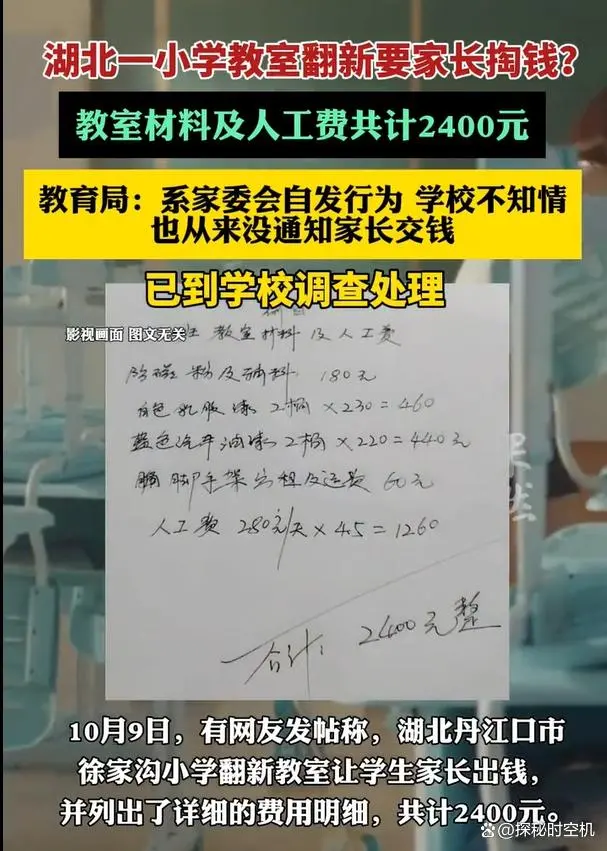 湖北一小学教室翻新要家长掏钱?
教室材料及人工费共计2400元
教育局：系家委会自发行为 学校不知情
也从来没通知家长交钱
已到学校调查处理
影视画面 图文无关
班 教室材料及人工费
粉及辅料 180元
色乳胶漆 2桶×230=460
蓝色汽车油漆 2桶×220=440元
脚手架出租及运费 60元
人工费 280元/天×4.5=1260
合计: 2400元整
10月9日，有网友发帖称，湖北丹江口市
徐家沟小学翻新教室让学生家长出钱，
并列出了详细的费用明细，共计2400元。
@探秘时空机